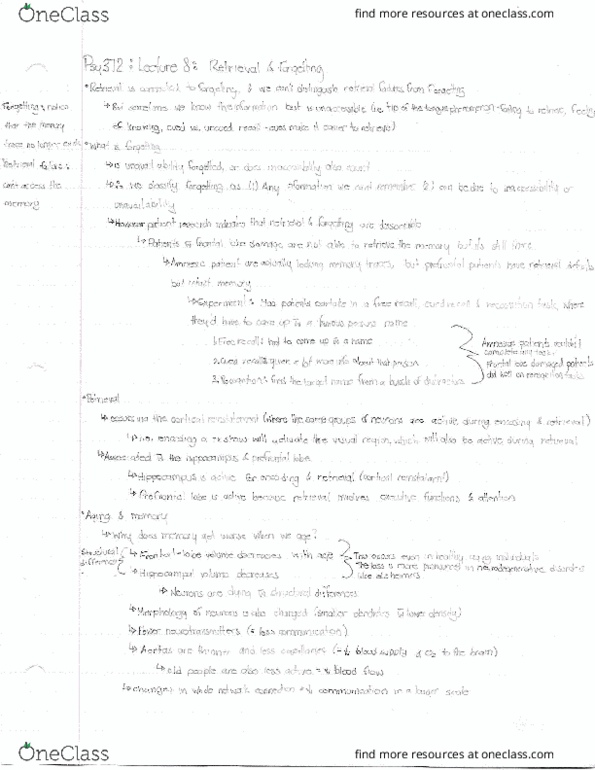 OneClass
find more resources at oneclass.com
Psy372: Lecture 8: Retrieval & Forgetting
*Retrieval is connected to forgetting, & we can't distinguish retrieval failures from forgetting
↳But sometimes we know the information but is unaccessible (i.e. tip of the tongue phenomenon - failing to retrieve, feeling
of knowing, cued vs. uncued recall - cues make it easier to retrieve)
Forgetting: notion
that the memory
trace no longer exists
Retrieval failure:
can't access the
memory
*What is forgetting
↳Is unavailability forgetting, or does inaccessibility also count
↳So we classify forgetting as (1) Any information we can't remember (2) can be due to inaccessibility or
unavailability
↳However patient research indicates that retrieval & forgetting are dissociable
↳Patients frontal lobe damage are not able to retrieve the memory but it's still there
↳Amnesic patient are actually lacking memory traces, but prefrontal patients have retrieval deficits
but intact memory
↳Experiment: Had patients partake in a free recall, cued recall & recognition task, where
they'd have to come up to a famous persons name
1. Free recall: had to come up to a name
2. Cued recall: given a bit more info about that person
3. Recognition: find the target name from a bunch of distractors
Amnesics patients couldn't
complete any task.
Frontal lobe damaged patients
did well on recognition tasks
*Retrieval
↳Occurs via the cortical reinstatement (where the same groups of neurons are active during encoding & retrieval)
↳i.e. encoding a tv show will activate the visual region, which will also be active during retrieval
↳Associated to the hippocampus & prefrontal lobe
↳Hippocampus is active for encoding & retrieval (cortical reinstatement)
↳Prefrontal lobe is active because retrieval involves executive functions & attention
*Aging & memory
↳Why does memory get worse when we age?
Structural
differences
↳Frontal-lobe volume decreases with age
↳Hippocampal volume decreases
This occurs even in healthy aging individuals
The loss is more pronounced in neurodegenerative disorders
like alzheimers
↳Neurons are dying to structural differences
↳Morphology of neurons is also changed (smaller dendrites to lower density)
↳Fewer neurotransmitters (= less communication)
↳Arteries are thinner and less capillaries (=↓ blood supply & O2 to the brain)
↳old people are also less active =↓ blood flow
↳changes in whole network connection =↓ communication in a larger scale
OneClass
find more resources at oneclass.com